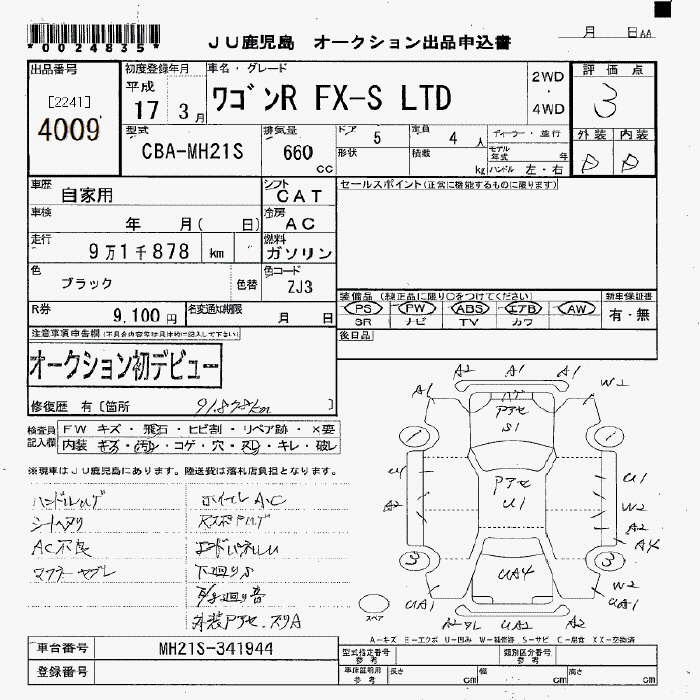 *0024835*
JU鹿児島 オークション出品申込書
月 日AA
出品番号
[2241]
4009
初度登録年月
平成
17 3月
車名・グレード
ワゴンR FX-S LTD
2WD
・
4WD
評価点
3
外装 内装
D D
型式
CBA-MH21S
排気量
660
cc
ドア 5
定員 4 人
ディーラー・並行
形状
積載 kg
モデル年式 年
ハンドル 左・右
車歴
自家用
シフト
CAT
セールスポイント(正常に機能するものに限ります)
車検
年 月( 日)
冷房
AC
走行
9万1千878 km
燃料
ガソリン
色
ブラック
色替
色コード
ZJ3
R券
9,100円
名変通知期限
月 日
装備品 (純正品に限り○をつけてください)
PS PW ABS エアB AW
SR ナビ TV カワ
新車保証書
有・無
後日品
注意事項申告欄(不具合内容等は具体的に記入して下さい)
オークション初デビュー
修復歴 有〔箇所 91,878km 〕
検査員
記入欄
FW キズ・飛石・ヒビ割・リペア跡・×要
内装 キズ・汚れ・コゲ・穴・スレ・キレ・破レ
※現車はJU鹿児島にあります。陸送費は落札店負担となります。
ハンドルハゲ
シートヘタリ
AC不良
マフラーサブレ
ホイールA.C
下廻りサ
外装アアセ.スリA
A2 A1 A1
A1
W2
ハゲ
アアセ
S1
1
1
U1
A2
アアセ
U1
U1
W2
A2
A4
3
3
UA4
W2
UA1
UA1
UA2
A2
スペア
A-キズ E-エクボ U-凹み W-補修跡 S-サビ C-腐食 XX-交換済
車台番号
MH21S-341944
登録番号
型式指定番号
参考
類別区分番号
参考
車庫証明用
参考
長さ cm
幅 cm
高さ cm